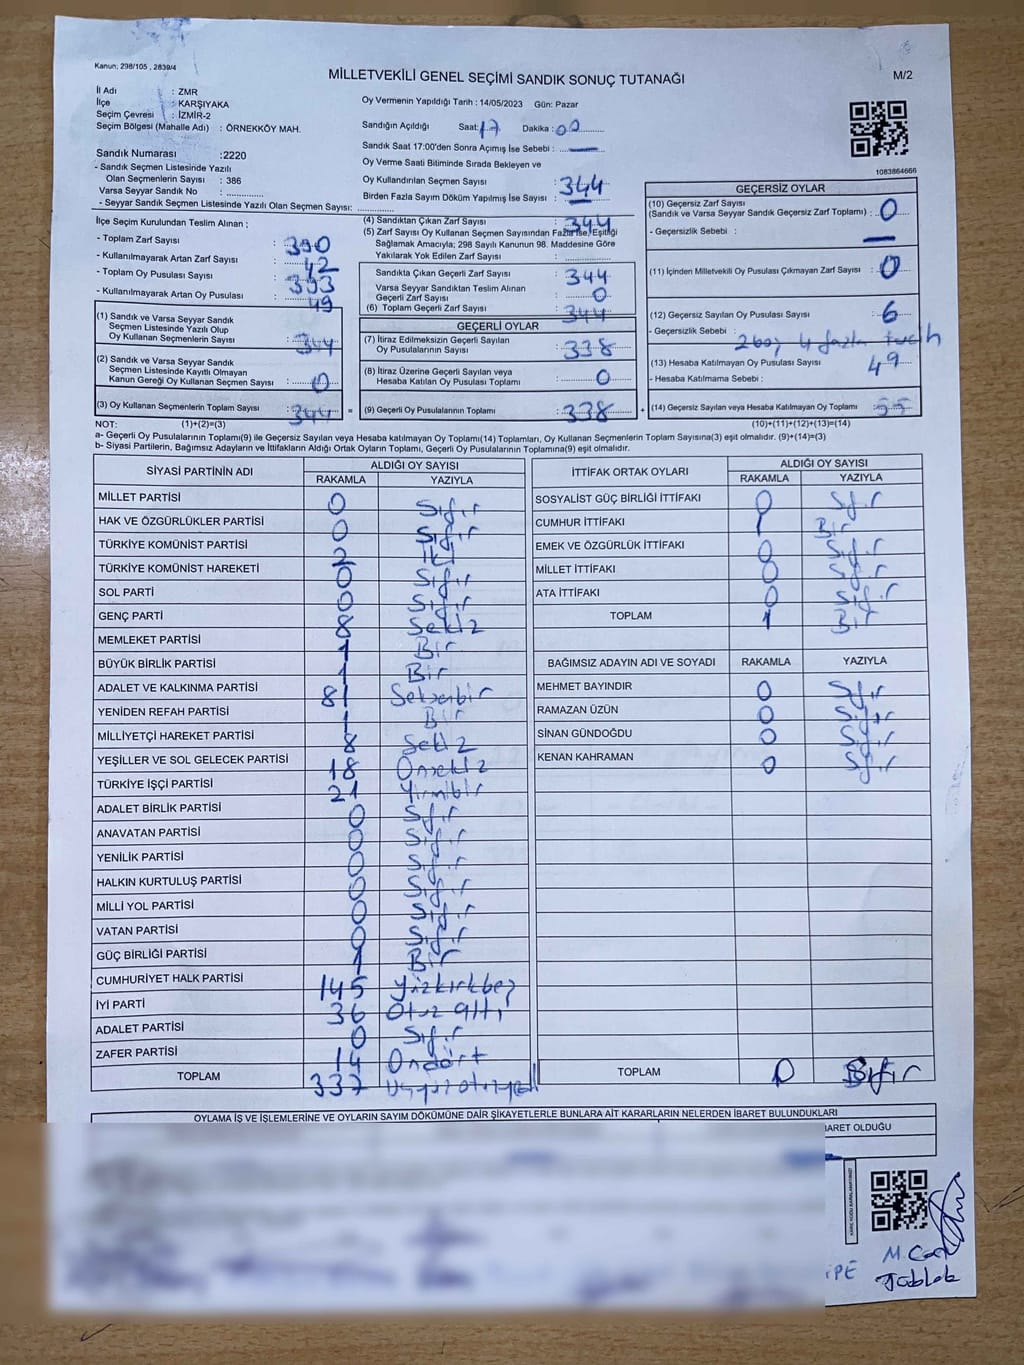 Kanun; 298/105 , 2839/4
MİLLETVEKİLİ GENEL SEÇİMİ SANDIK SONUÇ TUTANAĞI
M/2
İl Adı : ZMR
İlçe : KARŞIYAKA
Seçim Çevresi : İZMİR-2
Seçim Bölgesi (Mahalle Adı) : ÖRNEKKÖY MAH.
Sandık Numarası :2220
- Sandık Seçmen Listesinde Yazılı
Olan Seçmenlerin Sayısı : 386
Varsa Seyyar Sandık No :
- Seyyar Sandık Seçmen Listesinde Yazılı Olan Seçmen Sayısı:
Oy Vermenin Yapıldığı Tarih : 14/05/2023 Gün: Pazar
Sandığın Açıldığı Saat: 17 Dakika : 00
Sandık Saat 17:00'den Sonra Açımış İse Sebebi :
Oy Verme Saati Bitiminde Sırada Bekleyen ve
Oy Kullandırılan Seçmen Sayısı : 344
Birden Fazla Sayım Döküm Yapılmış İse Sayısı :
1083864666
İlçe Seçim Kurulundan Teslim Alınan ;
- Toplam Zarf Sayısı : 390
- Kullanılmayarak Artan Zarf Sayısı : 42
- Toplam Oy Pusulası Sayısı : 393
- Kullanılmayarak Artan Oy Pusulası : 49
(1) Sandık ve Varsa Seyyar Sandık
Seçmen Listesinde Yazılı Olup
Oy Kullanan Seçmenlerin Sayısı : 344
(2) Sandık ve Varsa Seyyar Sandık
Seçmen Listesinde Kayıtlı Olmayan
Kanun Gereği Oy Kullanan Seçmen Sayısı : 0
(3) Oy Kullanan Seçmenlerin Toplam Sayısı : 344 =
(4) Sandıktan Çıkan Zarf Sayısı : 344
(5) Zarf Sayısı Oy Kullanan Seçmen Sayısından Fazla İse, Eşitliği
Sağlamak Amacıyla; 298 Sayılı Kanunun 98. Maddesine Göre
Yakılarak Yok Edilen Zarf Sayısı :
Sandıkta Çıkan Geçerli Zarf Sayısı : 344
Varsa Seyyar Sandıktan Teslim Alınan
Geçerli Zarf Sayısı : 0
(6) Toplam Geçerli Zarf Sayısı : 344
GEÇERLİ OYLAR
(7) İtiraz Edilmeksizin Geçerli Sayılan
Oy Pusulalarının Sayısı : 338
(8) İtiraz Üzerine Geçerli Sayılan veya
Hesaba Katılan Oy Pusulası Toplamı : 0
(9) Geçerli Oy Pusulalarının Toplamı : 338 +
GEÇERSİZ OYLAR
(10) Geçersiz Zarf Sayısı
(Sandık ve Varsa Seyyar Sandık Geçersiz Zarf Toplamı) : 0
- Geçersizlik Sebebi :
(11) İçinden Milletvekili Oy Pusulası Çıkmayan Zarf Sayısı : 0
(12) Geçersiz Sayılan Oy Pusulası Sayısı : 6
- Geçersizlik Sebebi : 2 boş 4 fazla tercih
(13) Hesaba Katılmayan Oy Pusulası Sayısı : 49
- Hesaba Katılmama Sebebi :
(14) Geçersiz Sayılan veya Hesaba Katılmayan Oy Toplamı : 55
NOT: (1)+(2)=(3) (10)+(11)+(12)+(13)=(14)
a- Geçerli Oy Pusulalarının Toplamı(9) ile Geçersiz Sayılan veya Hesaba katılmayan Oy Toplamı(14) Toplamları, Oy Kullanan Seçmenlerin Toplam Sayısına(3) eşit olmalıdır. (9)+(14)=(3)
b- Siyasi Partilerin, Bağımsız Adayların ve İttifakların Aldığı Ortak Oyların Toplamı, Geçerli Oy Pusulalarının Toplamına(9) eşit olmalıdır.
SİYASİ PARTİNİN ADI ALDIĞI OY SAYISI
RAKAMLA YAZIYLA
MİLLET PARTİSİ 0 Sıfır
HAK VE ÖZGÜRLÜKLER PARTİSİ 0 Sıfır
TÜRKİYE KOMÜNİST PARTİSİ 2 İki
TÜRKİYE KOMÜNİST HAREKETİ 0 Sıfır
SOL PARTİ 0 Sıfır
GENÇ PARTİ 8 Sekiz
MEMLEKET PARTİSİ 1 Bir
BÜYÜK BİRLİK PARTİSİ 1 Bir
ADALET VE KALKINMA PARTİSİ 81 Seksenbir
YENİDEN REFAH PARTİSİ 1 Bir
MİLLİYETÇİ HAREKET PARTİSİ 8 Sekiz
YEŞİLLER VE SOL GELECEK PARTİSİ 18 Onsekiz
TÜRKİYE İŞÇİ PARTİSİ 21 Yirmibir
ADALET BİRLİK PARTİSİ 0 Sıfır
ANAVATAN PARTİSİ 0 Sıfır
YENİLİK PARTİSİ 0 Sıfır
HALKIN KURTULUŞ PARTİSİ 0 Sıfır
MİLLİ YOL PARTİSİ 0 Sıfır
VATAN PARTİSİ 0 Sıfır
GÜÇ BİRLİĞİ PARTİSİ 1 Bir
CUMHURİYET HALK PARTİSİ 145 Yüzkırkbeş
İYİ PARTİ 36 Otuz altı
ADALET PARTİSİ 0 Sıfır
ZAFER PARTİSİ 14 Ondört
TOPLAM 337 Üçyüzotuzyedi
İTTİFAK ORTAK OYLARI ALDIĞI OY SAYISI
RAKAMLA YAZIYLA
SOSYALİST GÜÇ BİRLİĞİ İTTİFAKI 0 Sıfır
CUMHUR İTTİFAKI 1 Bir
EMEK VE ÖZGÜRLÜK İTTİFAKI 0 Sıfır
MİLLET İTTİFAKI 0 Sıfır
ATA İTTİFAKI 0 Sıfır
TOPLAM 1 Bir
BAĞIMSIZ ADAYIN ADI VE SOYADI RAKAMLA YAZIYLA
MEHMET BAYINDIR 0 Sıfır
RAMAZAN ÜZÜN 0 Sıfır
SİNAN GÜNDOĞDU 0 Sıfır
KENAN KAHRAMAN 0 Sıfır
TOPLAM 0 Sıfır
OYLAMA İŞ VE İŞLEMLERİNE VE OYLARIN SAYIM DÖKÜMÜNE DAİR ŞİKAYETLERLE BUNLARA AİT KARARLARIN NELERDEN İBARET BULUNDUKLARI
BARET OLDUĞU